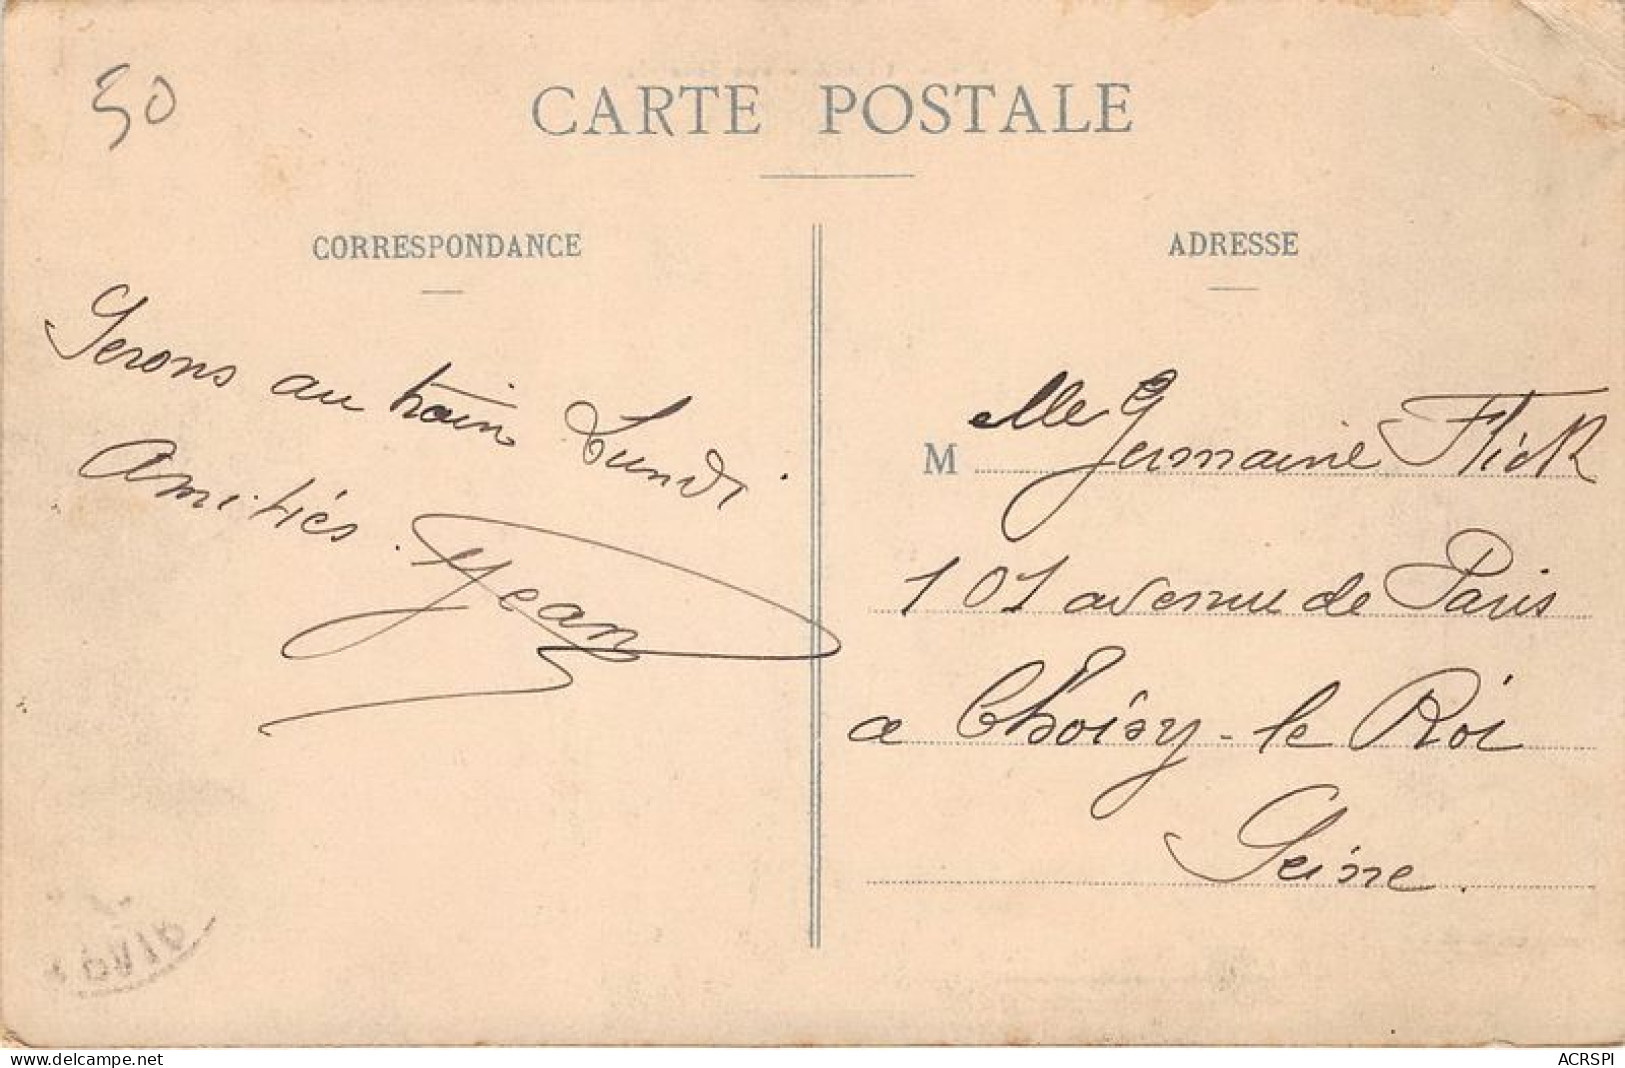 50
CARTE POSTALE
CORRESPONDANCE
Serons au train Lundi
Amitiés. Jean
ADRESSE
M elle Germaine Flick
101 avenue de Paris
a Choisy-le Roi
Seine.
delcampe.net
ACRSPI